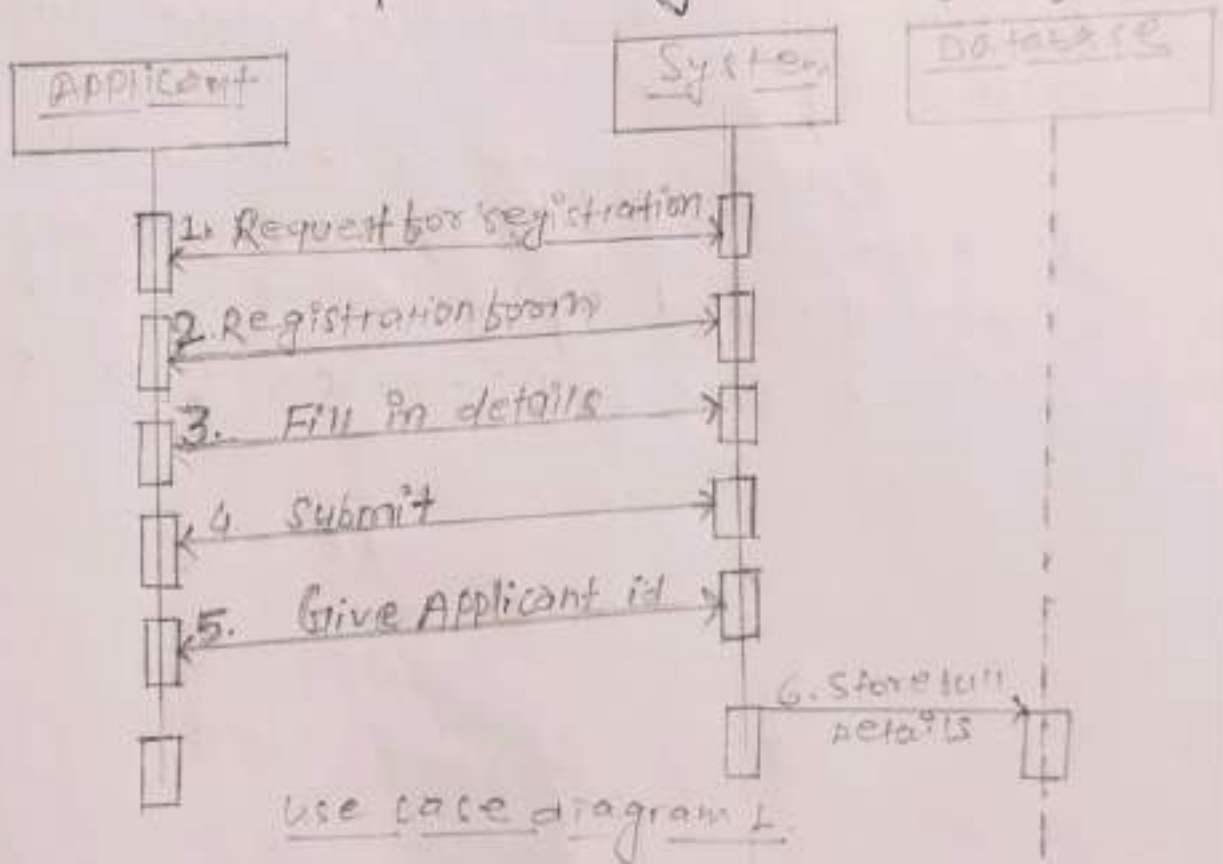 Applicant
System
Database
1. Request for registration
2. Registration form
3. Fill in details
4. Submit
5. Give Applicant id
6. Store
Details
Use case diagram 1.